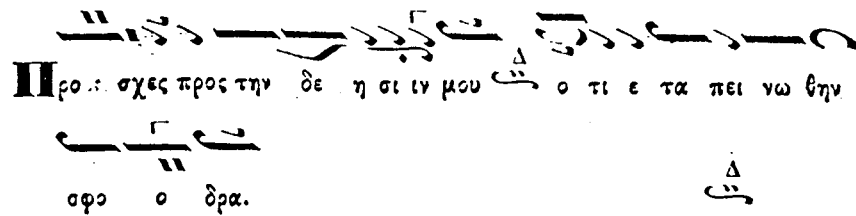 Προ σχες προς την δε η σι ιν μου Δ ο τι ε τα πει νω θην
σφο ο δρα. Δ